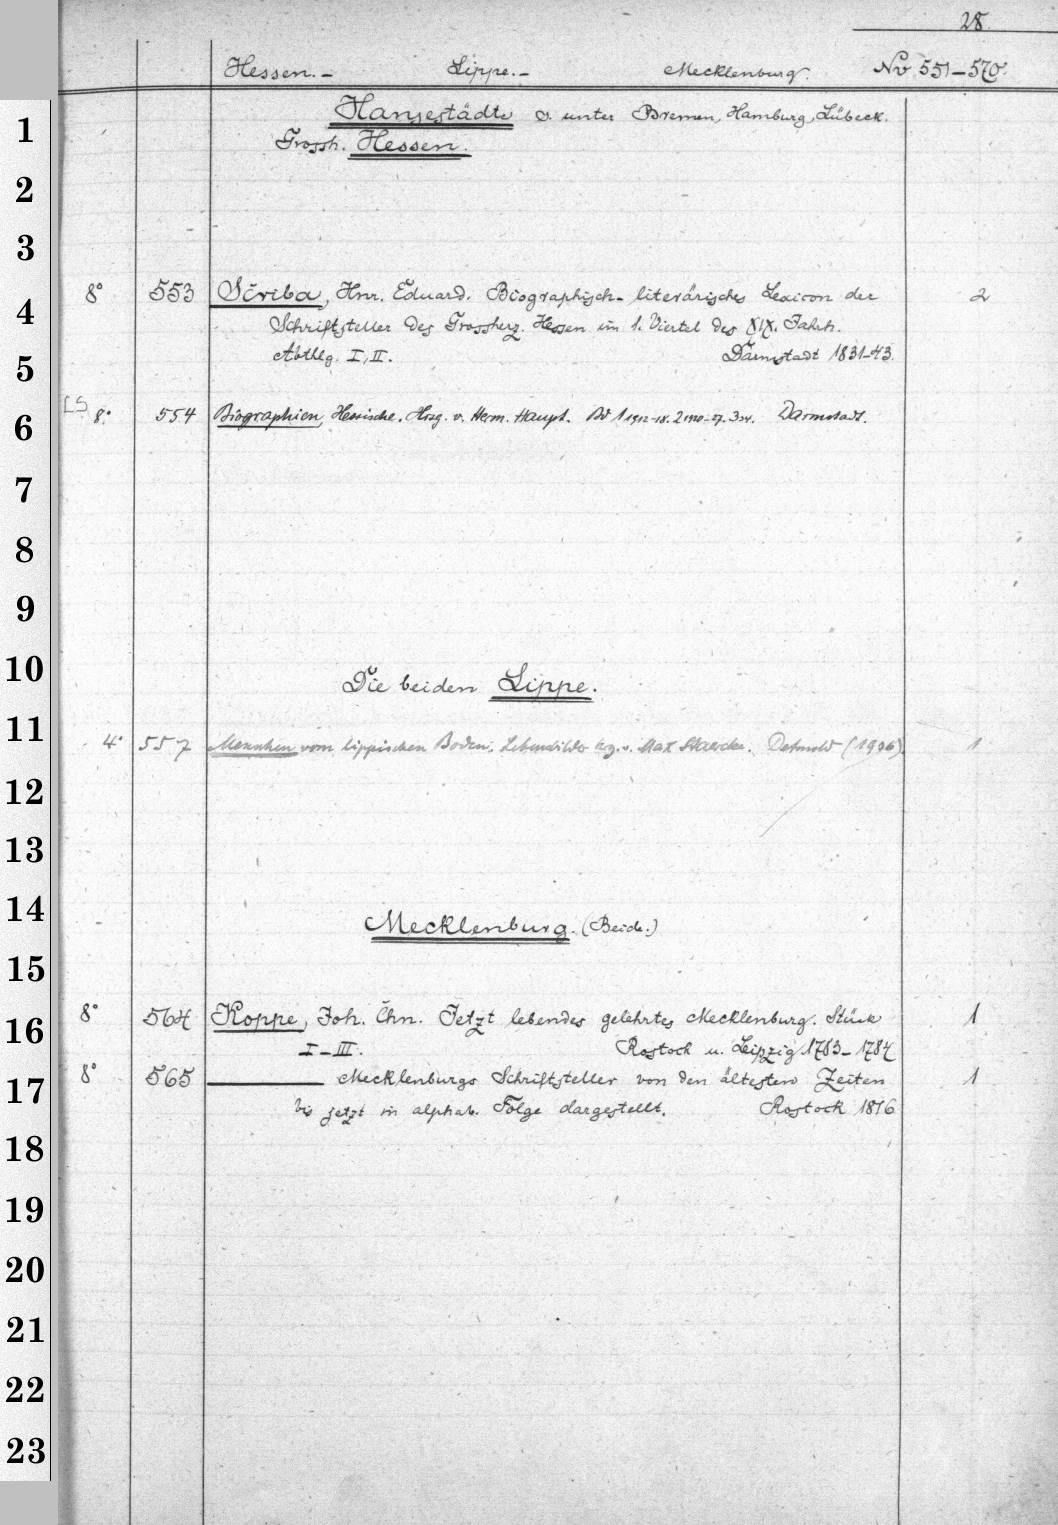 28.
Hessen. – Lippe. – Mecklenburg. No 551–570.
Hansestädte s. unter Bremen, Hamburg, Lübeck.
Grossh. Hessen.
8° 553 Scriba, Hnr. Eduard. Biographisch-literärisches Lexicon der 2
Schriftsteller des Grossherz. Hessen im 1. Viertel des XIX. Jahrh.
Abthlg. I, II. Darmstadt 1831–43.
LS 8° 554 Biographien, Hessische. Hrsg. v. Herm. Haupt. Bd 1 1912–18. 2 1920–27. 3 34. Darmstadt.
Die beiden Lippe.
4° 557 Menschen vom lippischen Boden. Lebensbilder hrg. v. Max Staercke. Detmold (1936). 1
Mecklenburg. (Beide.)
8° 564 Koppe, Joh. Chn. Jetzt lebendes gelehrtes Mecklenburg. Stück 1
I–III. Rostock u. Leipzig 1783–1784
8° 565 ——— Mecklenburgs Schriftsteller von den ältesten Zeiten 1
bis jetzt in alphab. Folge dargestellt. Rostock 1816
1
2
3
4
5
6
7
8
9
10
11
12
13
14
15
16
17
18
19
20
21
22
23